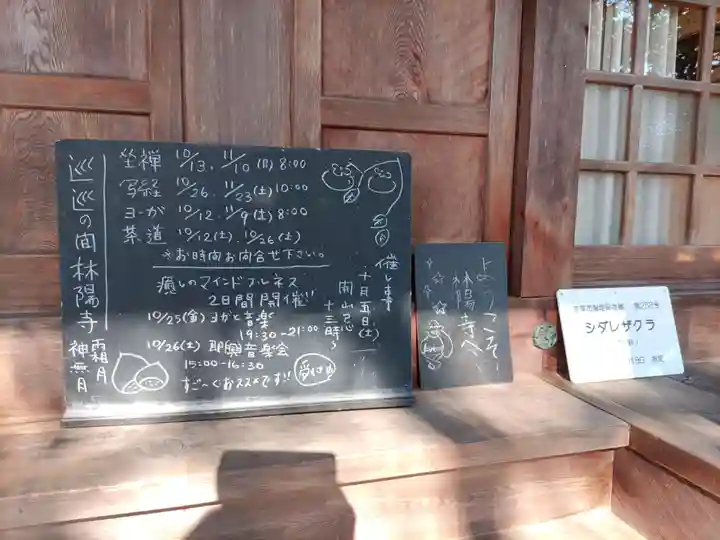 巡巡の間 林陽寺
霜月
神無月
坐禅 10/13. 11/10 (日) 8:00
写経 10/26. 11/23 (土) 10:00
ヨガ 10/12. 11/9 (土) 8:00
茶道 10/12 (土). 10/26 (土)
※お時間お問合せ下さい。
癒しのマインドフルネス
2日間開催!!
10/25(金) ヨガと音楽
19:30-21:00
10/26(土) 即興音楽会
15:00-16:30
すご〜くおススメです!!
催し事
十月五日(土)
開山忌
十三時〜
ようこそ
林陽寺へ
シダレザクラ